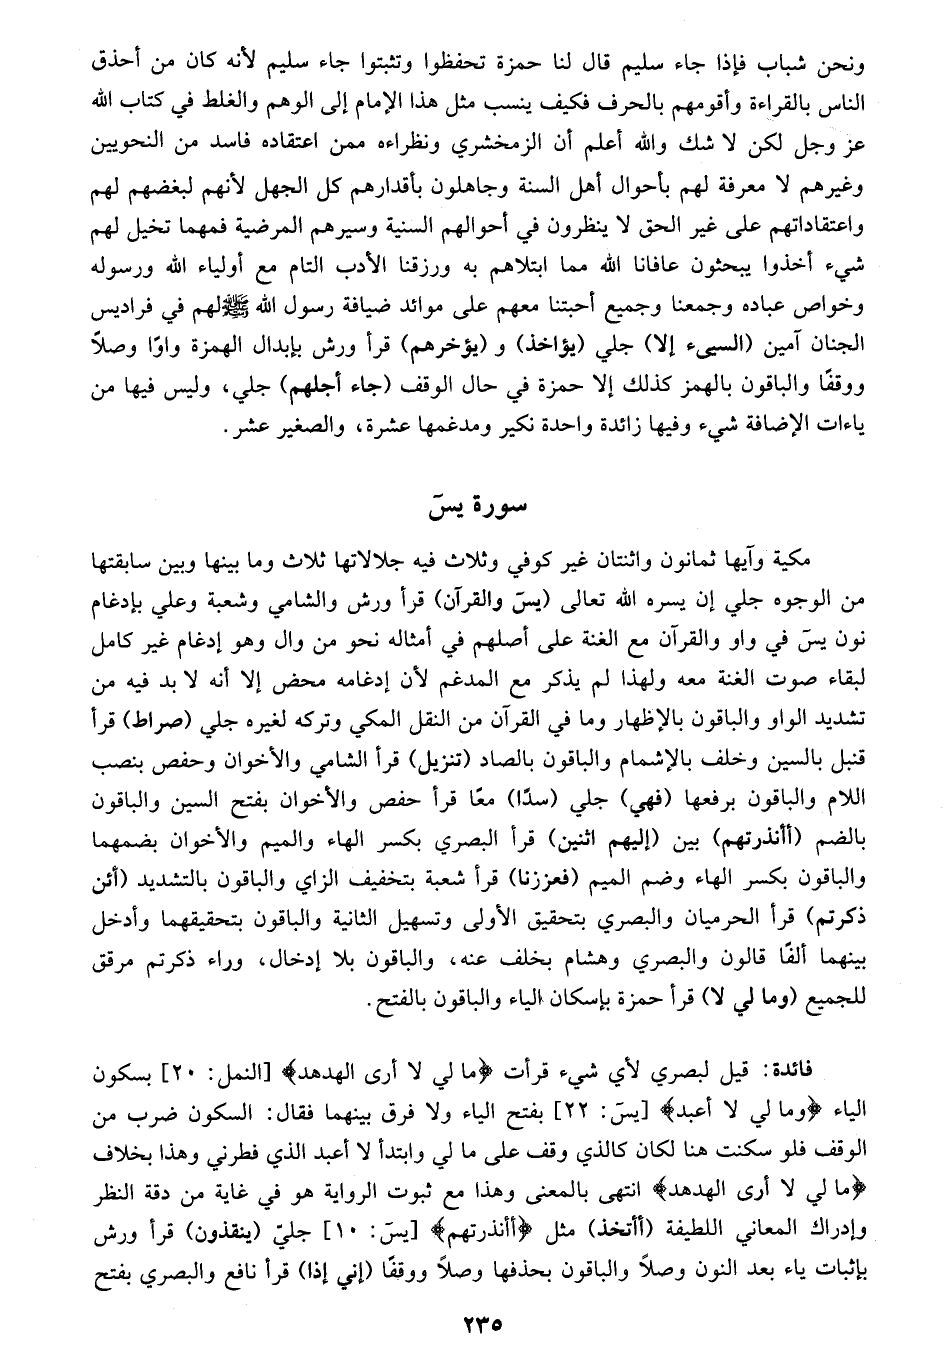 ونحن شباب فإذا جاء سليم قال لنا حمزة تحفظوا وتثبتوا جاء سليم لأنه كان من أحذق
الناس بالقراءة وأقومهم بالحرف فكيف ينسب مثل هذا الإمام إلى الوهم والغلط في كتاب الله
عز وجل لكن لا شك والله أعلم أن الزمخشري ونظراءه ممن اعتقاده فاسد من النحويين
وغيرهم لا معرفة لهم بأحوال أهل السنة وجاهلون بأقدارهم كل الجهل لأنهم لبغضهم لهم
واعتقاداتهم على غير الحق لا ينظرون في أحوالهم السنية وسيرهم المرضية فمهما تخيل لهم
شيء أخذوا يبحثون عافانا الله مما ابتلاهم به ورزقنا الأدب التام مع أولياء الله ورسوله
وخواص عباده وجمعنا وجميع أحبتنا معهم على موائد ضيافة رسول الله ﷺ لهم في فراديس
الجنان آمين (السيىء إلا) جلي (يؤاخذ) و (يؤخرهم) قرأ ورش بإبدال الهمزة واوًا وصلاً
ووقفًا والباقون بالهمز كذلك إلا حمزة في حال الوقف (جاء أجلهم) جلي، وليس فيها من
ياءات الإضافة شيء وفيها زائدة واحدة نكير ومدغمها عشرة، والصغير عشر.
سورة يسَ
مكية وآيها ثمانون واثنتان غير كوفي وثلاث فيه جلالاتها ثلاث وما بينها وبين سابقتها
من الوجوه جلي إن يسره الله تعالى (يسَ والقرآن) قرأ ورش والشامي وشعبة وعلي بإدغام
نون يسَ في واو والقرآن مع الغنة على أصلهم في أمثاله نحو من وال وهو إدغام غير كامل
لبقاء صوت الغنة معه ولهذا لم يذكر مع المدغم لأن إدغامه محض إلا أنه لا بد فيه من
تشديد الواو والباقون بالإظهار وما في القرآن من النقل المكي وتركه لغيره جلي (صراط) قرأ
قنبل بالسين وخلف بالإشمام والباقون بالصاد (تنزيل) قرأ الشامي والأخوان وحفص بنصب
اللام والباقون برفعها (فهي) جلي (سدًا) معًا قرأ حفص والأخوان بفتح السين والباقون
بالضم (أأنذرتهم) بين (إليهم اثنين) قرأ البصري بكسر الهاء والميم والأخوان بضمهما
والباقون بكسر الهاء وضم الميم (فعززنا) قرأ شعبة بتخفيف الزاي والباقون بالتشديد (أئن
ذكرتم) قرأ الحرميان والبصري بتحقيق الأولى وتسهيل الثانية والباقون بتحقيقهما وأدخل
بينهما ألفًا قالون والبصري وهشام بخلف عنه، والباقون بلا إدخال، وراء ذكرتم مرقق
للجميع (وما لي لا) قرأ حمزة بإسكان الياء والباقون بالفتح.
فائدة: قيل لبصري لأي شيء قرأت ﴿ما لي لا أرى الهدهد﴾ [النمل: ٢٠] بسكون
الياء ﴿وما لي لا أعبد﴾ [يسَ: ٢٢] بفتح الياء ولا فرق بينهما فقال: السكون ضرب من
الوقف فلو سكنت هنا لكان كالذي وقف على ما لي وابتدأ لا أعبد الذي فطرني وهذا بخلاف
﴿ما لي لا أرى الهدهد﴾ انتهى بالمعنى وهذا مع ثبوت الرواية هو في غاية من دقة النظر
وإدراك المعاني اللطيفة (أأتخذ) مثل ﴿أأنذرتهم﴾ [يسَ: ١٠] جليّ (ينقذون) قرأ ورش
بإثبات ياء بعد النون وصلاً والباقون بحذفها وصلاً ووقفًا (إني إذا) قرأ نافع والبصري بفتح
٢٣٥